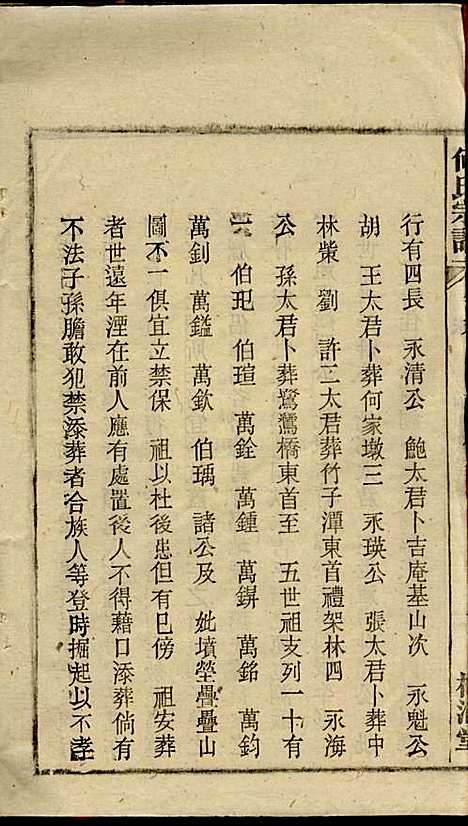 氏宗譜
行有四長 永清公 鮑太君卜吉庵基山次 永魁公
胡 王太君卜葬何家墩三 永瑛公 張太君卜葬中
林柴 劉 許二太君葬竹子潭東首禮架林四 永海
公 孫太君卜葬鷺鷥橋東首至 五世祖支列一十有
伯玘 伯瑄 萬銓 萬鍾 萬鎅 萬銘 萬鈞
萬釗 萬鎰 萬欽 伯瑀 諸公及 妣墳塋疊疊山
圖不一俱宜立禁保 祖以杜後患但有已傍 祖安葬
者世遠年湮在前人應有處置後人不得藉口添葬倘有
不法子孫膽敢犯禁添葬者合族人等登時掘起以不孝